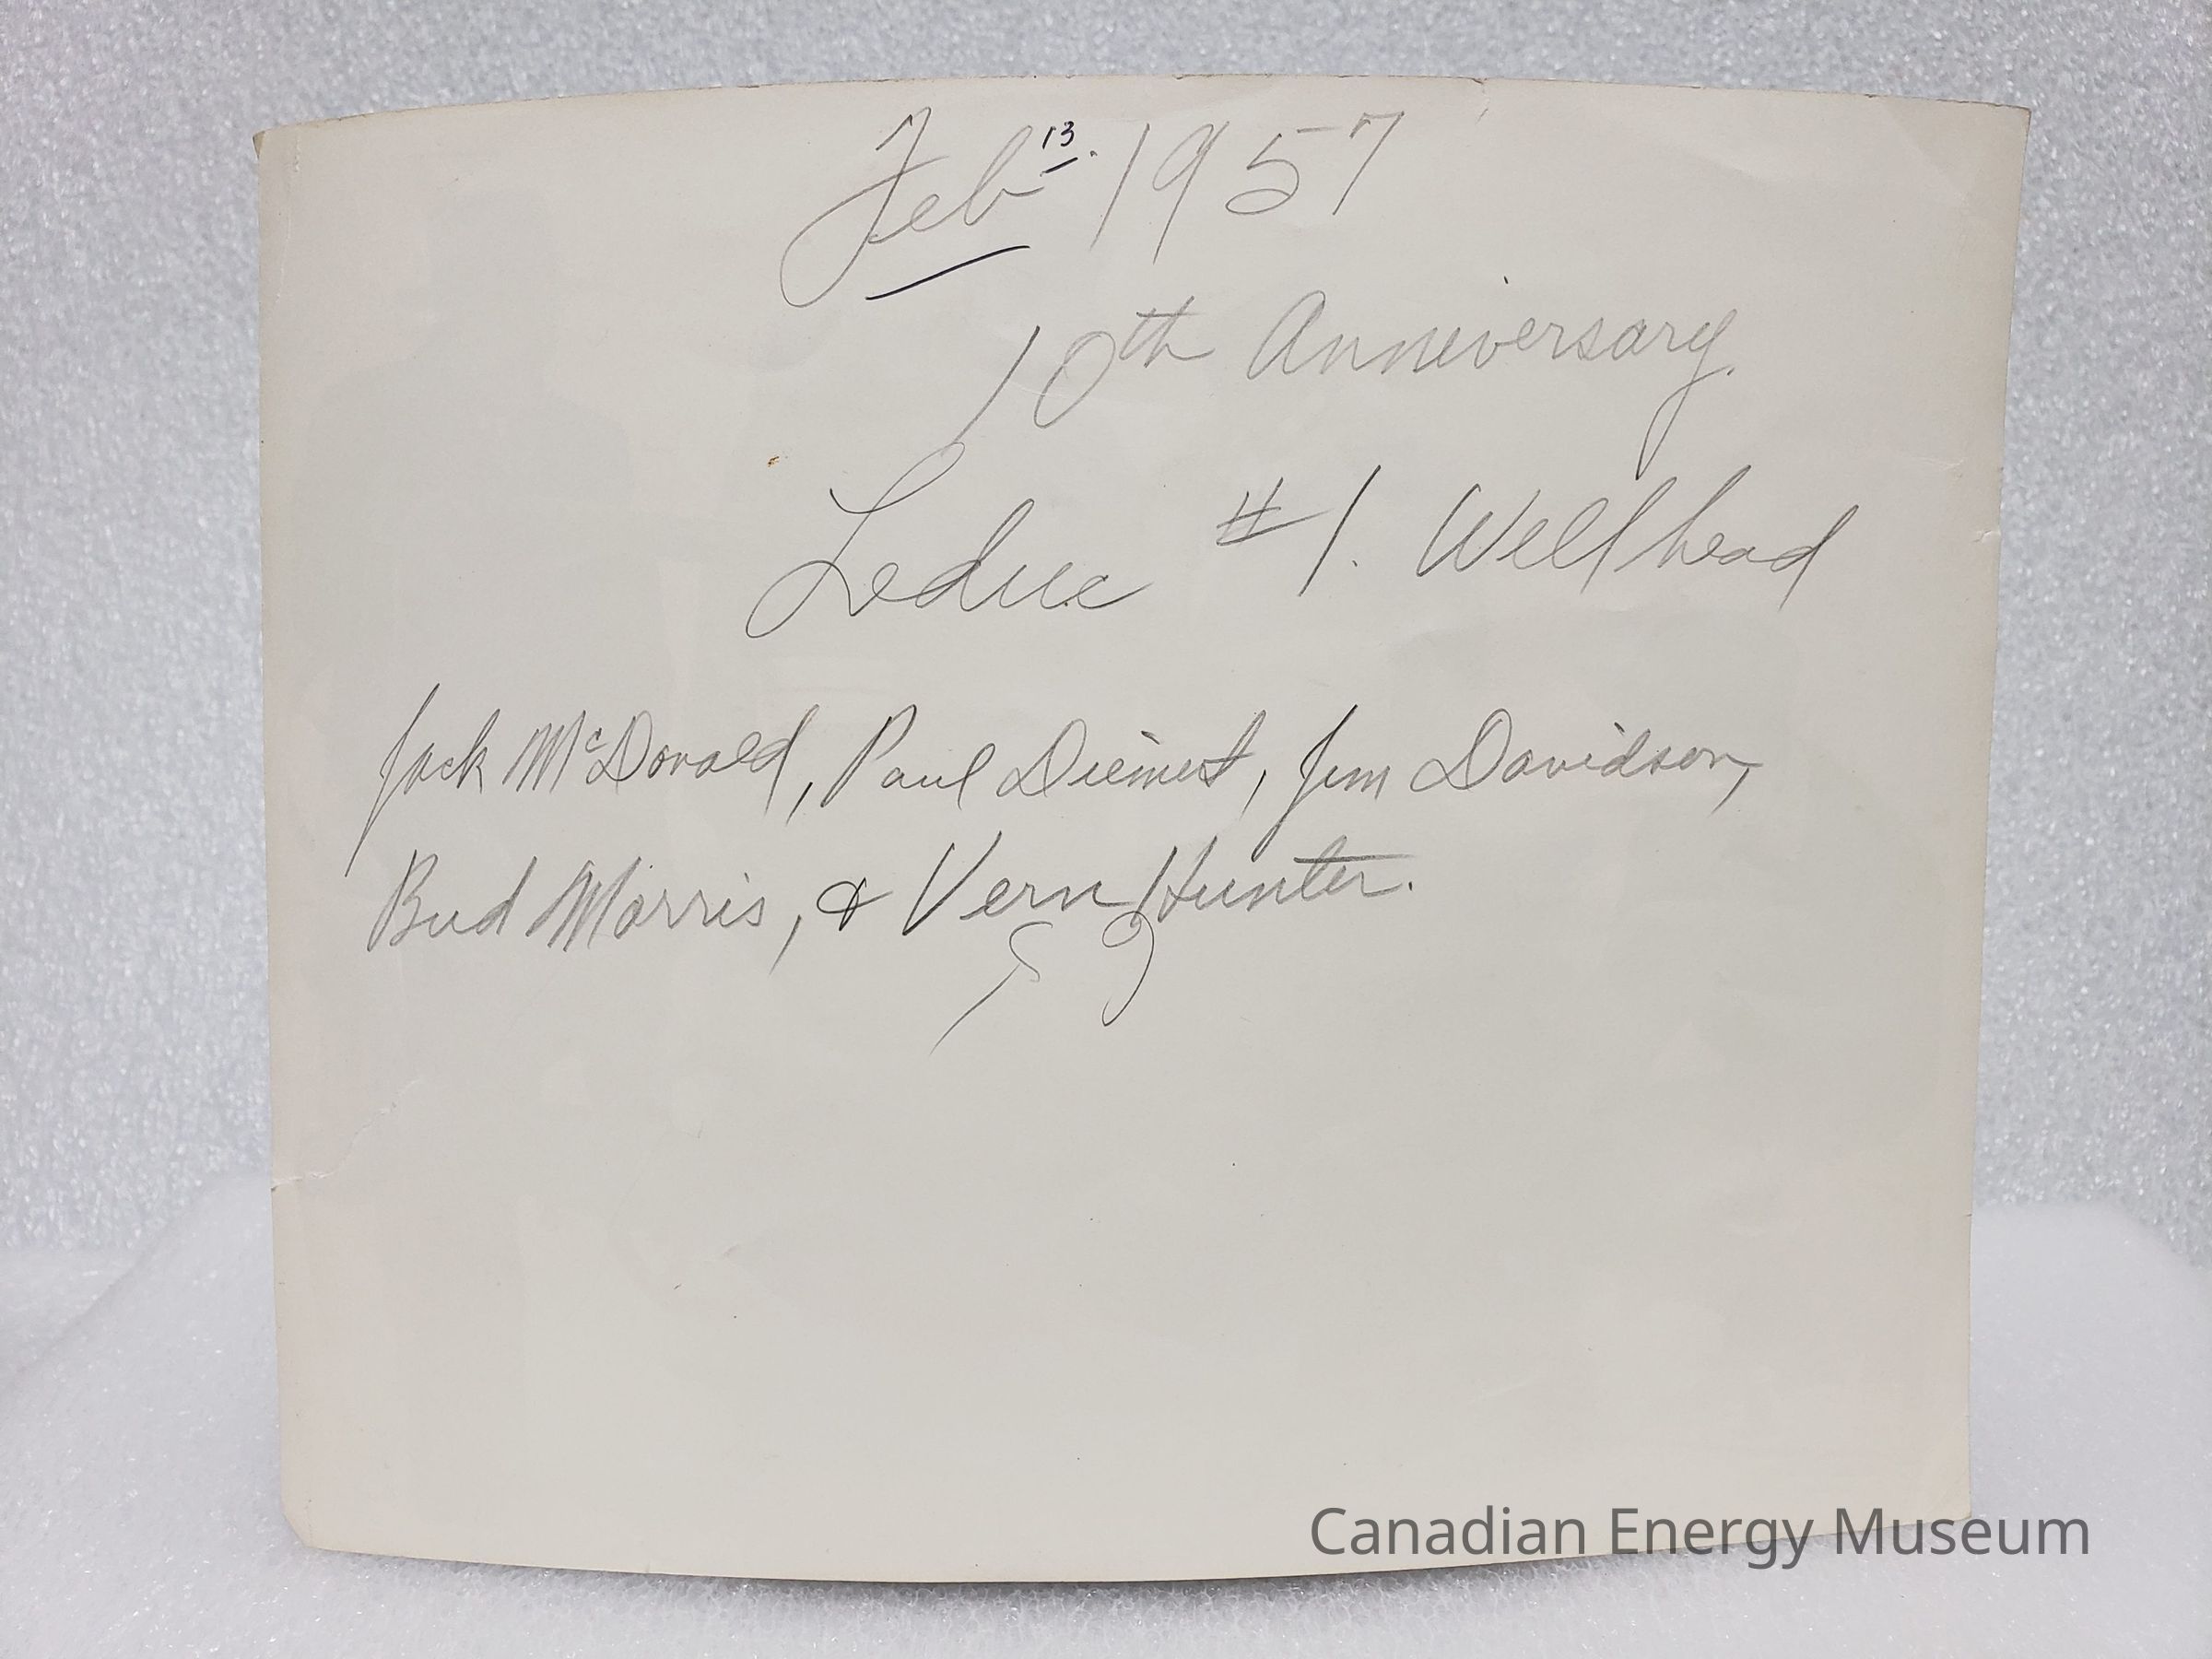 Feb 13. 1957
10th Anniversary.
Leduc #1. Wellhead
Jack McDonald, Paul Diemert, Jim Davidson,
Bud Morris, & Vern Hunter.
Canadian Energy Museum